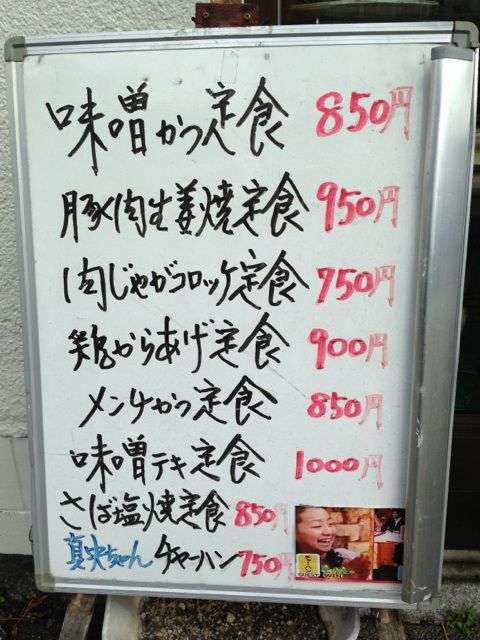 味噌かつ定食 850円
豚肉生姜焼定食 950円
肉じゃがコロッケ定食 750円
鶏からあげ定食 900円
メンチかつ定食 850円
味噌テキ定食 1000円
さば塩焼定食 850円
真央ちゃんチャーハン 750円
GUEST